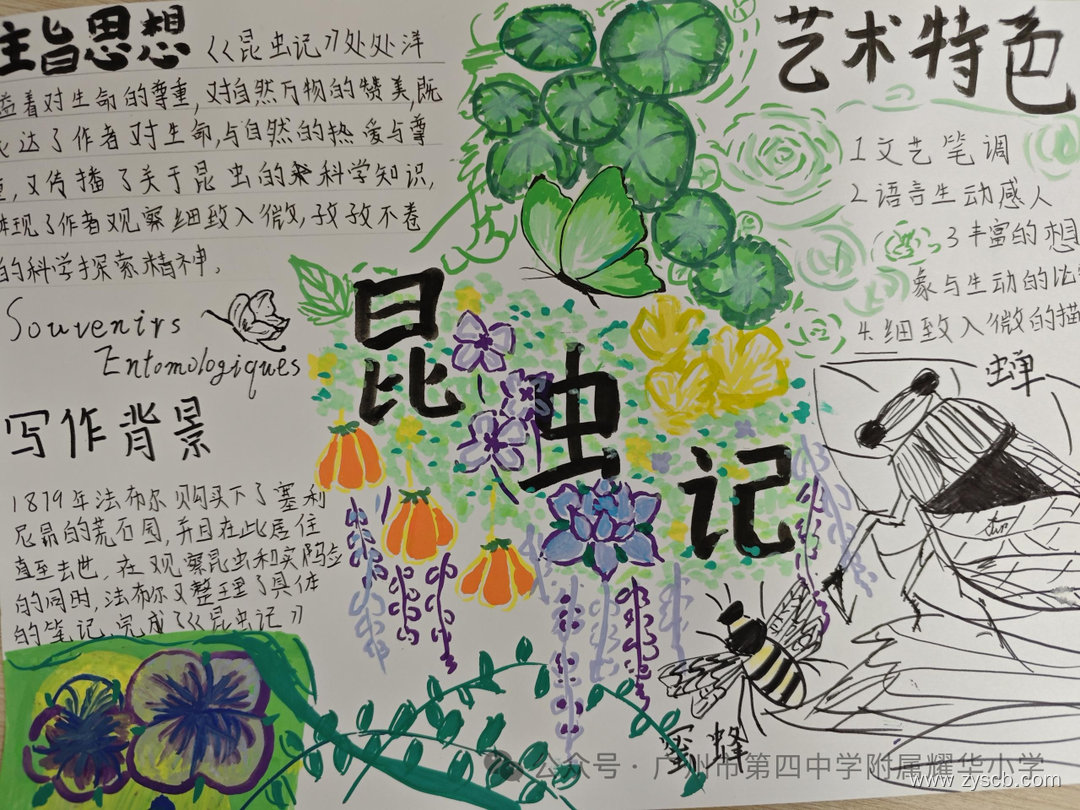 主旨思想
《昆虫记》处处洋
溢着对生命的尊重,对自然万物的赞美,既
表达了作者对生命,与自然的热爱与尊
重,又传播了关于昆虫的科学知识,
体现了作者观察细致入微,孜孜不卷
的科学探索精神。
Souvenirs
Entomologiques
写作背景
1879年法布尔购买下了塞利
尼昂的荒石园,并且在此居住
直至去世,在观察昆虫和实验
的同时,法布尔又整理了具体
的笔记,完成了《昆虫记》
昆虫记
艺术特色
1文艺笔调
2语言生动感人
3丰富的想
象与生动的比
4.细致入微的描
蝉
蜜蜂
公众号·广州市第四中学附属耀华小学
www.zyscb.com